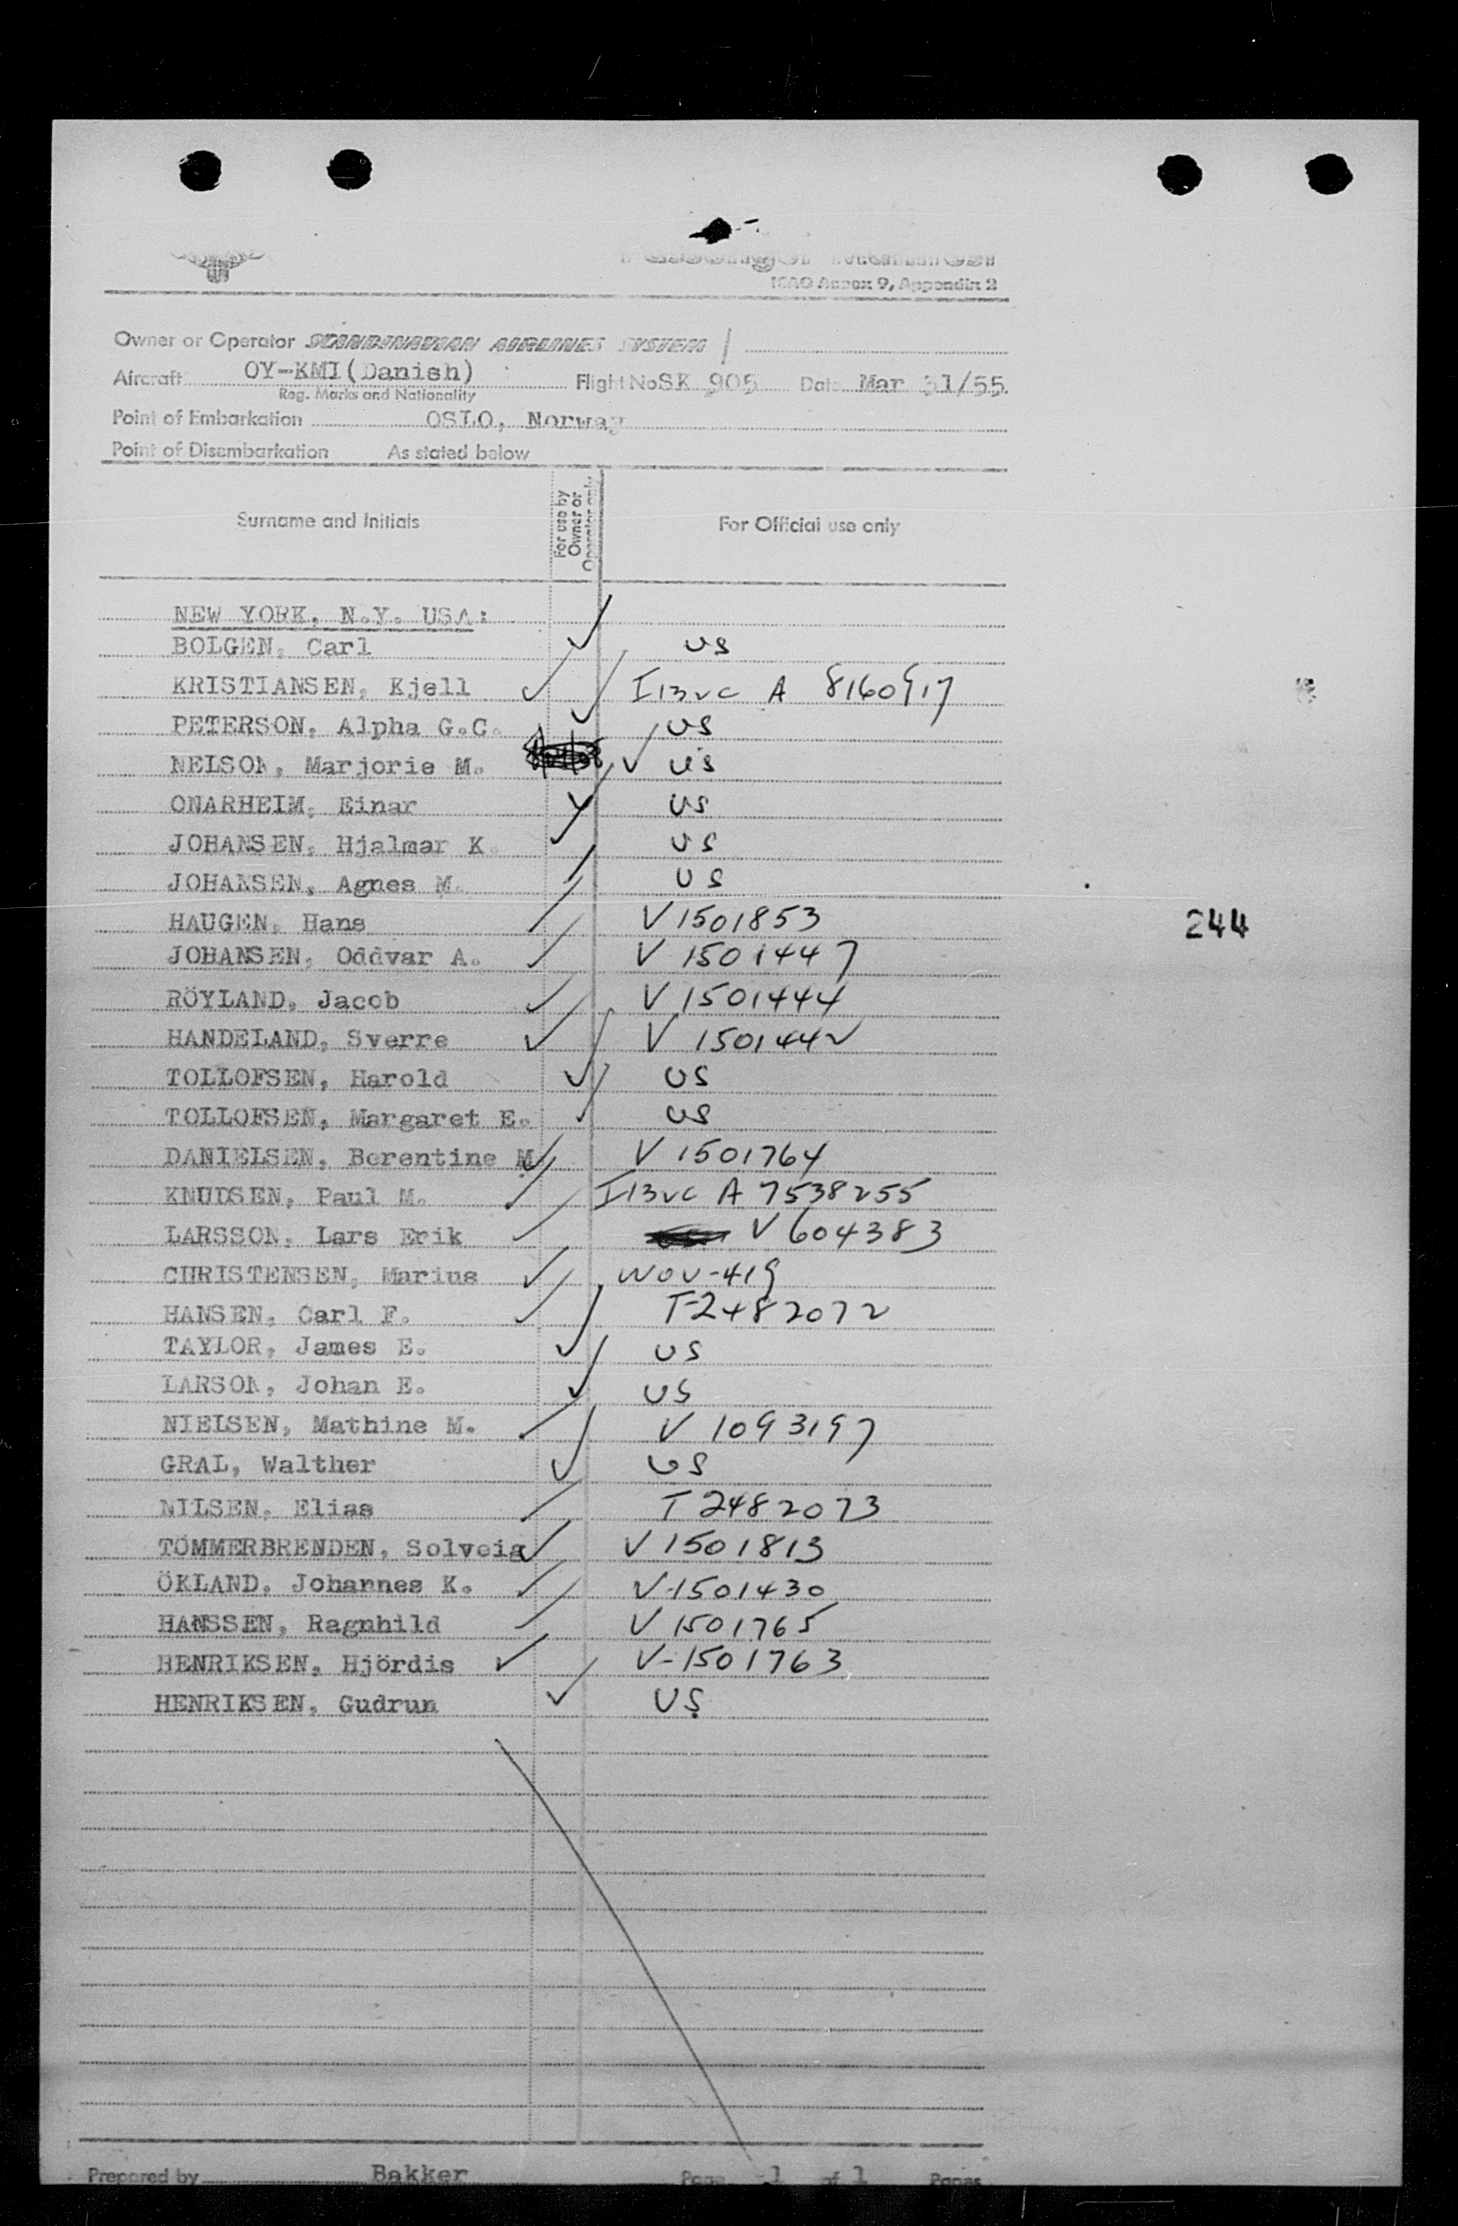 Passenger Manifest
ICAO Annex 9, Appendix 2
Owner or Operator SCANDINAVIAN AIRLINES SYSTEM
Aircraft OY-KMI(Danish) Flight No SK 905 Date Mar 31/55
Reg. Marks and Nationality
Point of Embarkation OSLO, Norway
Point of Disembarkation As stated below
Surname and Initials
For use by
Owner or
Operator only
For Official use only
NEW YORK, N.Y. USA:
BOLGEN, Carl US
KRISTIANSEN, Kjell I13vc A 8160917
PETERSON, Alpha G.C. US
NELSON, Marjorie M. US
ONARHEIM, Einar US
JOHANSEN, Hjalmar K. US
JOHANSEN, Agnes M. US
HAUGEN, Hans V 1501853
244
JOHANSEN, Oddvar A. V 1501447
RÖYLAND, Jacob V 1501444
HANDELAND, Sverre V 1501442
TOLLOFSEN, Harold US
TOLLOFSEN, Margaret E. US
DANIELSEN, Berentine M V 1501764
KNUDSEN, Paul M. I13vc A 7538255
LARSSON, Lars Erik V 604383
CHRISTENSEN, Marius WOV-419
HANSEN, Carl F. T-2482072
TAYLOR, James E. US
LARSON, Johan E. US
NIELSEN, Mathine M. V 1093197
GRAL, Walther US
NILSEN, Elias T 2482073
TÖMMERBRENDEN, Solveig V 1501813
ÖKLAND, Johannes K. V-1501430
HANSSEN, Ragnhild V 1501765
HENRIKSEN, Hjördis V-1501763
HENRIKSEN, Gudrun US
Prepared by Bakker Page 1 of 1 Pages